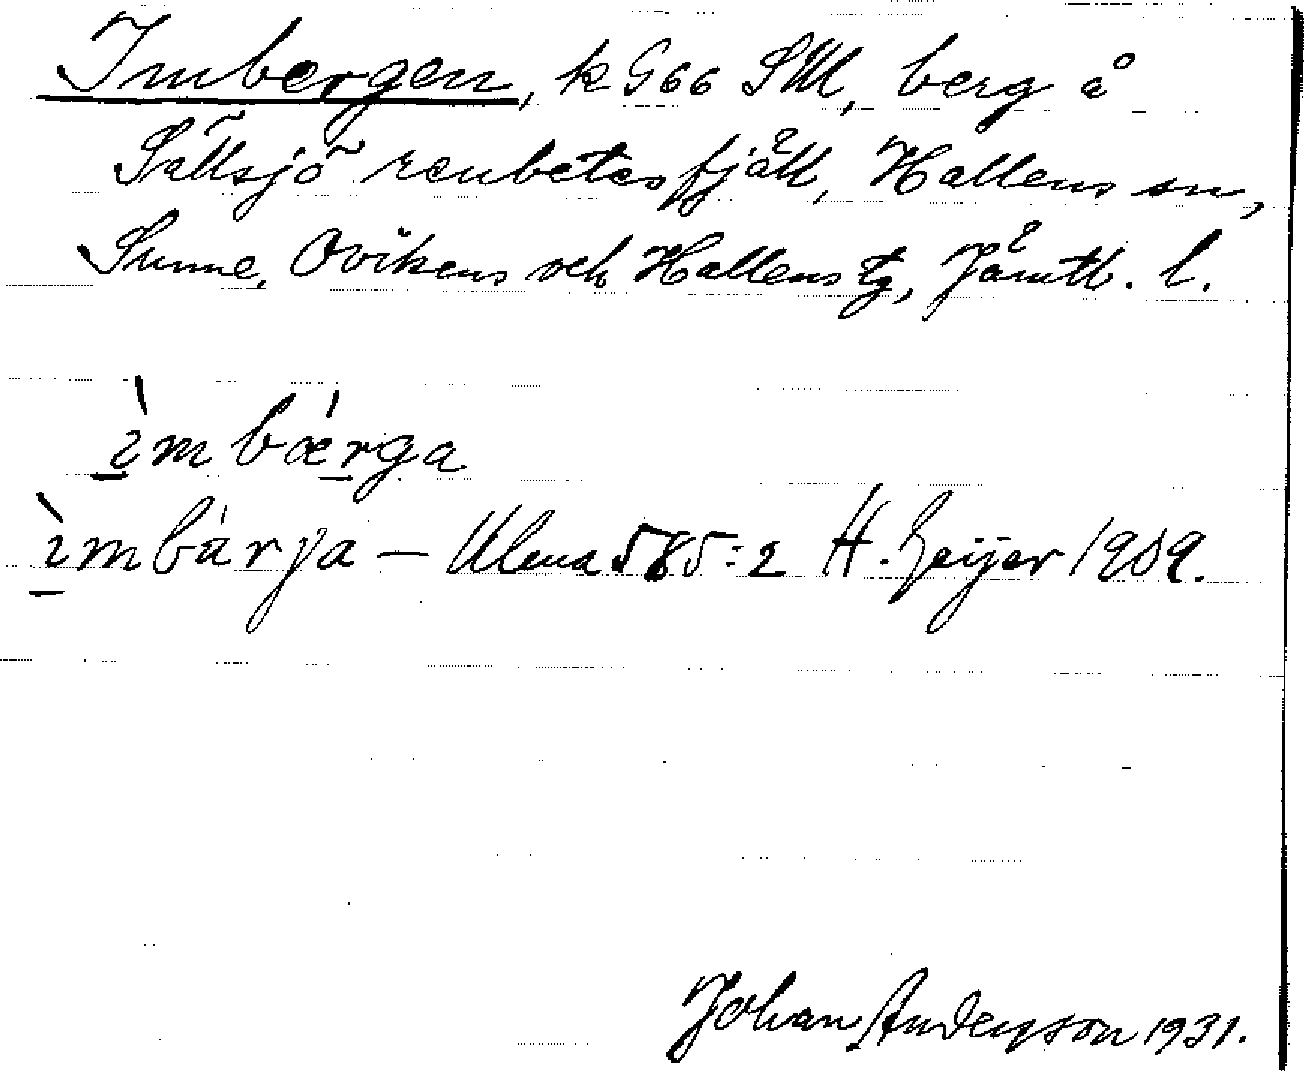 Imbergen, k G66 SM, berg å
Sällsjö renbetesfjäll, Hallens sn,
Sunne, Ovikens och Hallens tg, Jämtl. l.
ìmbǽrga
ìmbárja — Ulma 585:2 H. Geijer 1909.
Johan Anderson 1931.